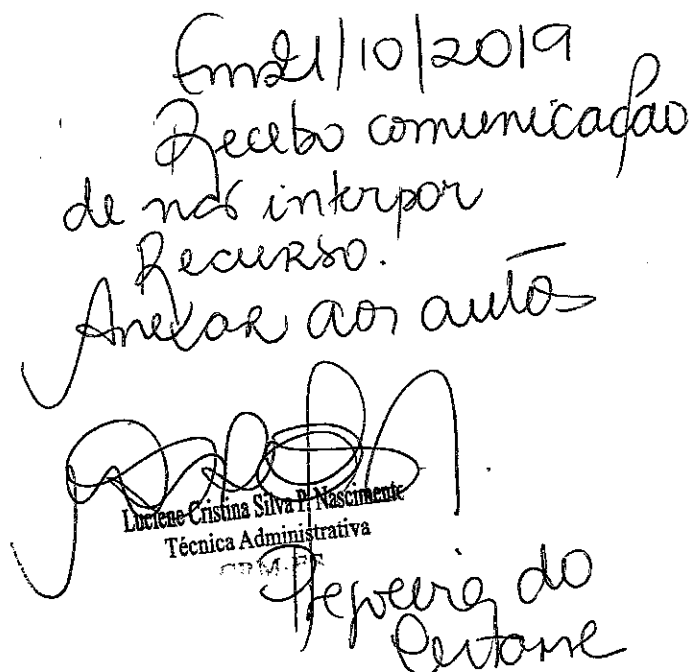 Em 21/10/2019
Recebo comunicação
de não interpor
Recurso.
Anexar aos autos
Luciene Cristina Silva P. Nascimento
Técnica Administrativa
Pregoeira do
Certame